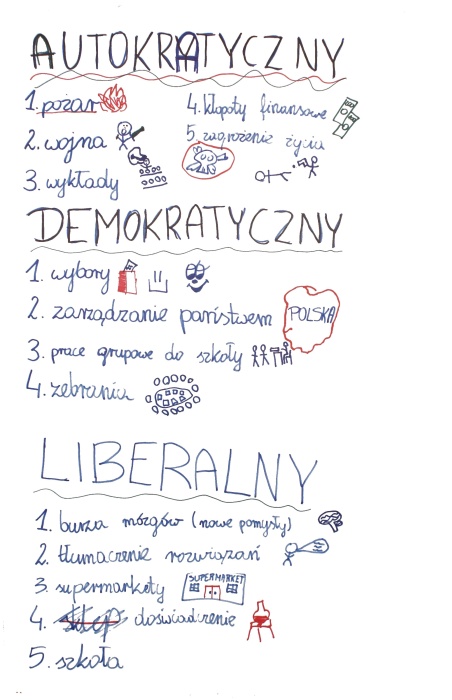 AUTOKRATYCZNY
1. pożar
2. wojna
3. wykłady
4. kłopoty finansowe
5. zagrożenie życia
DEMOKRATYCZNY
1. wybory
2. zarządzanie państwem POLSKA
3. prace grupowe do szkoły
4. zebrania
LIBERALNY
1. burza mózgów (nowe pomysły)
2. tłumaczenie rozwiązań
3. supermarkety SUPERMARKET
4. doświadczenie
5. szkoła